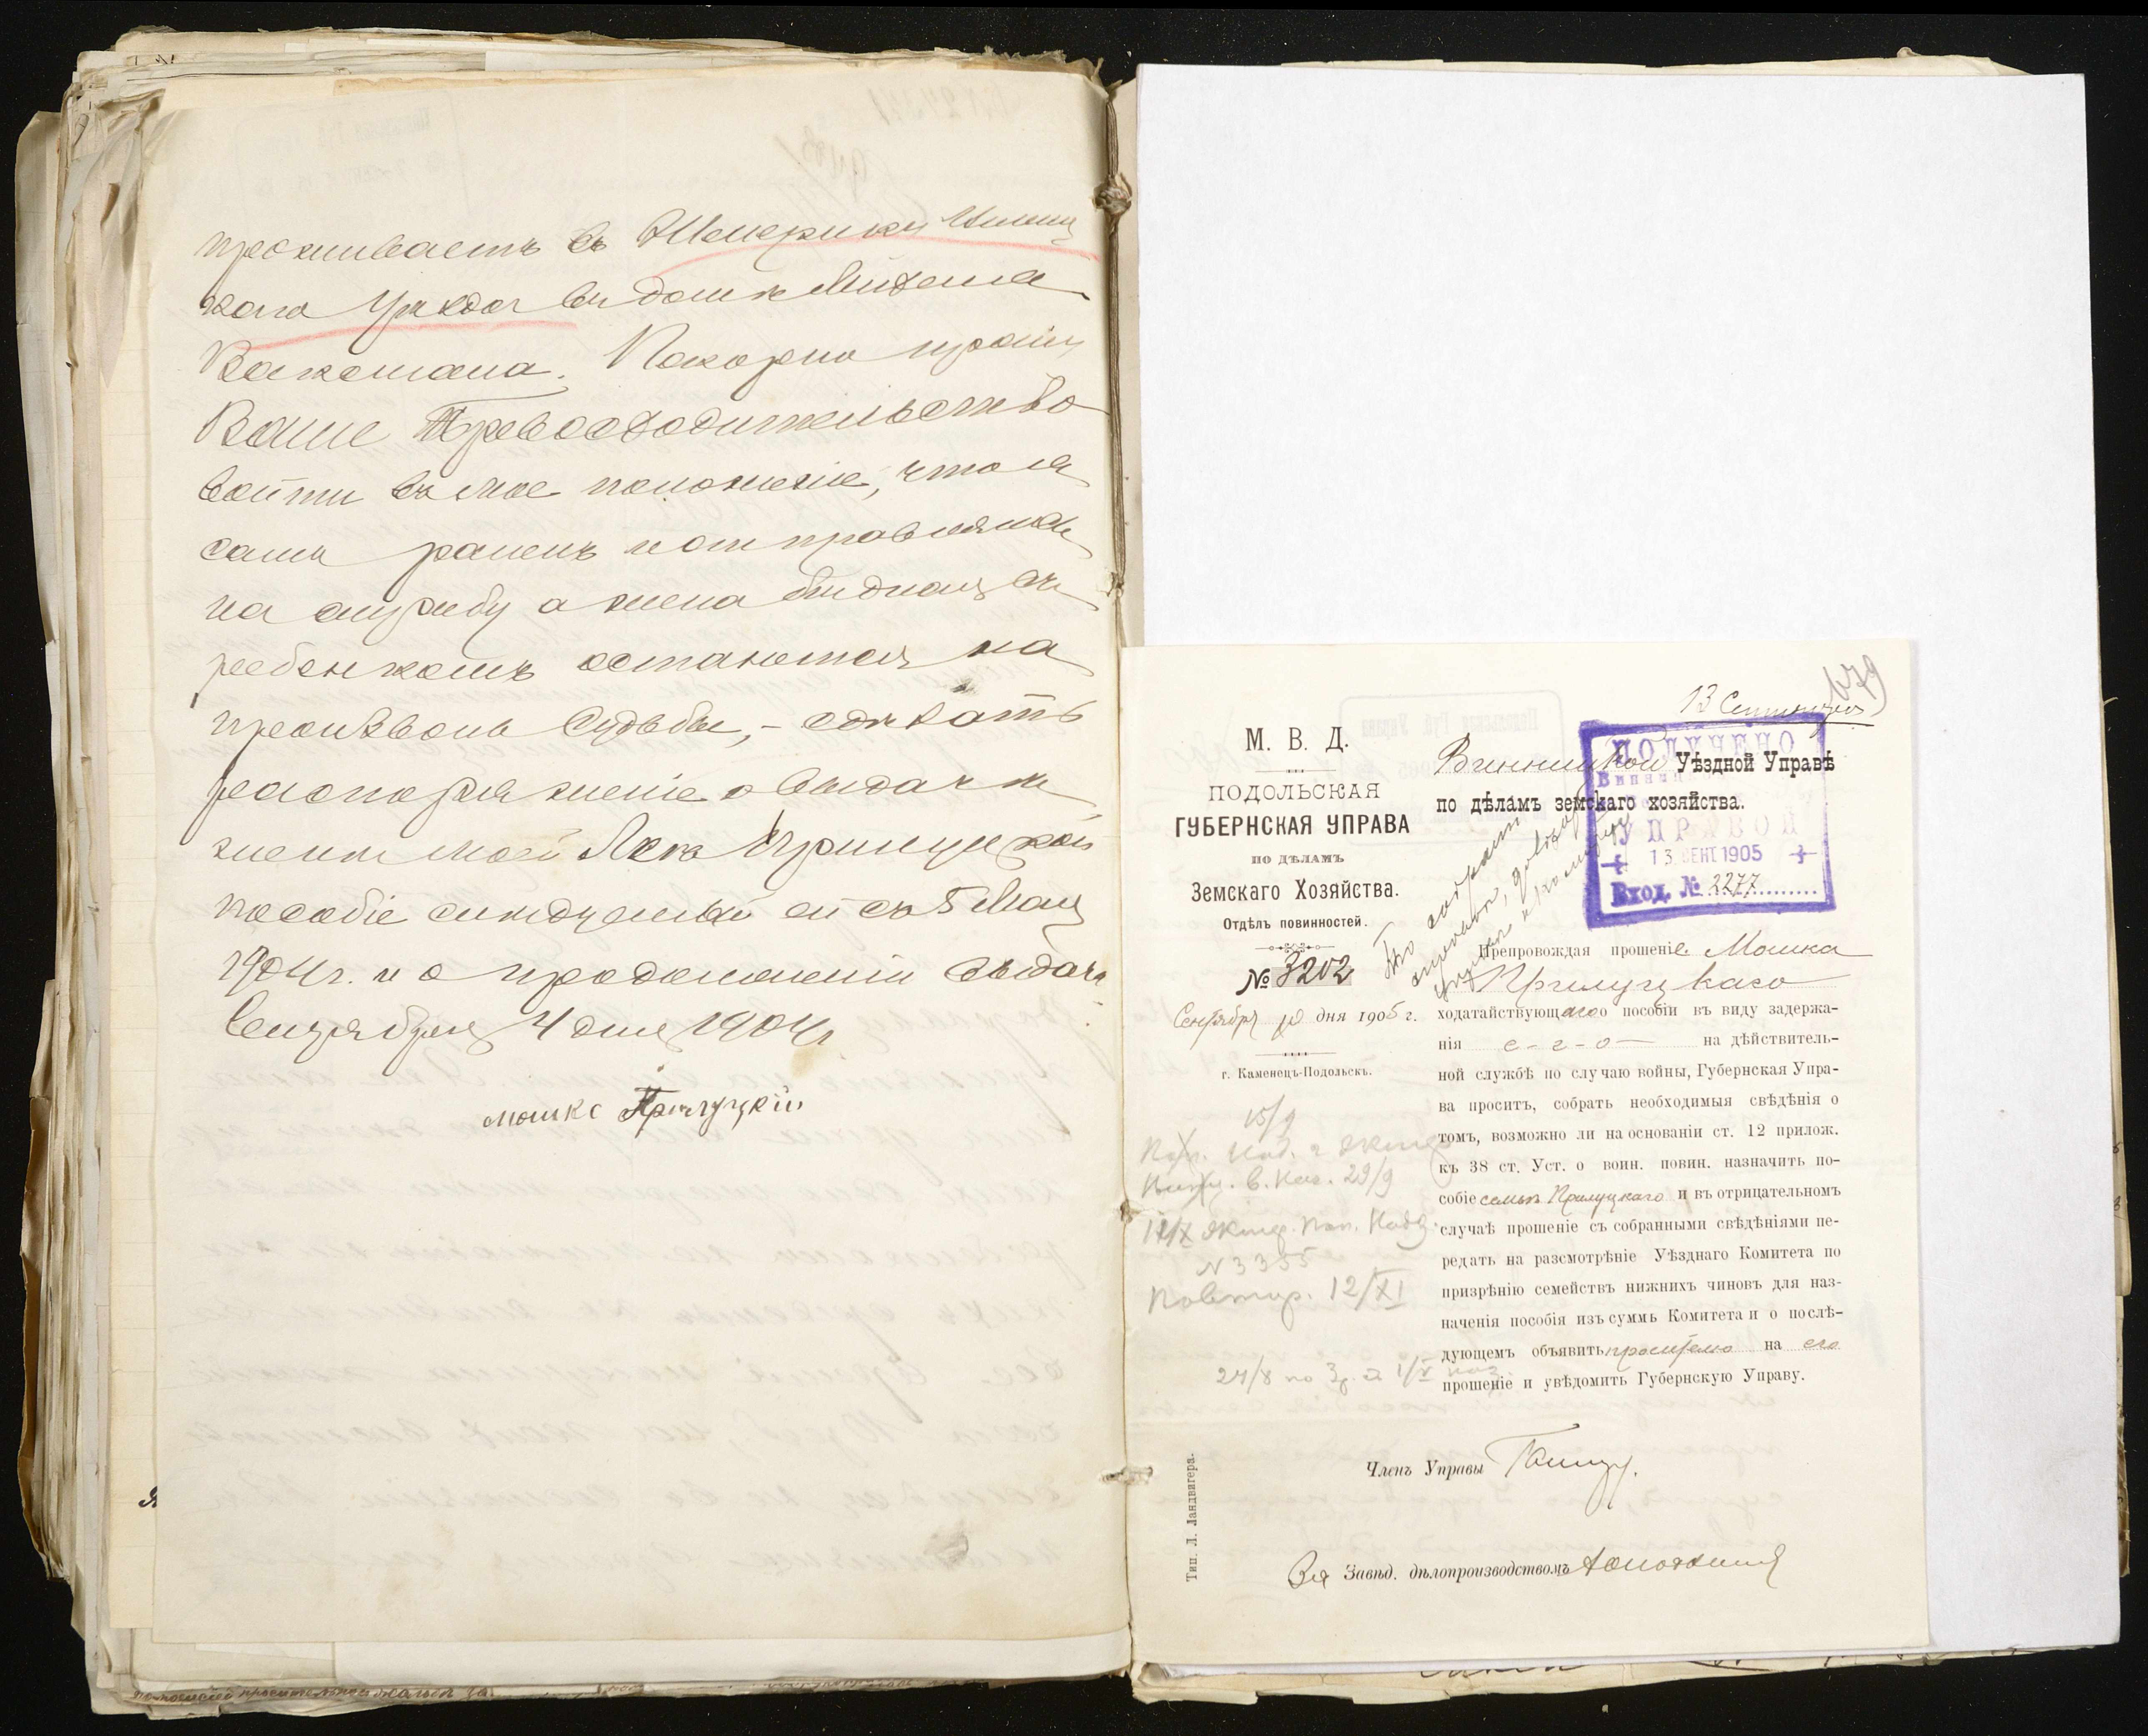 проживаетъ въ Жмеринки Винниц
каго Уѣзда въ домѣ
Ваксмана. Покорно прошу
Ваше Превосходительство
войти въ мое положеніе, что я
самъ раненъ и отправляюсь
на службу а жена бѣдная съ
ребенкомъ остаются на
произволъ Судьбы, - сдѣлать
распоряженіе о выдачѣ
женѣ моей Прилуцкой
пособіе слѣдуемый ей съ 5 Мая
1904 г. и о продолженіи выдачи
Сентября 4 дня 1904 г
мошко Прилуцкій
М. В. Д.
ПОДОЛЬСКАЯ
ГУБЕРНСКАЯ УПРАВА
ПО ДѢЛАМЪ
Земскаго Хозяйства.
Отдѣлъ повинностей.
№ 3202
Сентября 10 дня 1905 г.
г. Каменецъ-Подольскъ.
15/9
29/9
№ 3355
Повтор. 12/XI
Тип. Л. Ландвигера.
179
13 Сентября
Винницкой Уѣздной Управѣ
по дѣламъ земскаго хозяйства.
ПОЛУЧЕНО
УПРАВОЙ
13 СЕНТ 1905
Вход. № 2277
Препровождая прошеніе Мошка
Прилуцкаго
ходатайствующаго о пособіи въ виду задержа-
нія е-г-о на дѣйствитель-
ной службѣ по случаю войны, Губернская Упра-
ва проситъ, собрать необходимыя свѣдѣнія о
томъ, возможно ли на основаніи ст. 12 прилож.
къ 38 ст. Уст. о воин. повин. назначить по-
собіе семьѣ Прилуцкаго и въ отрицательномъ
случаѣ прошеніе съ собранными свѣдѣніями пе-
редать на разсмотрѣніе Уѣзднаго Комитета по
призрѣнію семействъ нижнихъ чиновъ для наз-
наченія пособія изъ суммъ Комитета и о послѣ-
дующемъ объявить просителю на его
прошеніе и увѣдомить Губернскую Управу.
Членъ Управы
За Завѣд. дѣлопроизводствомъ